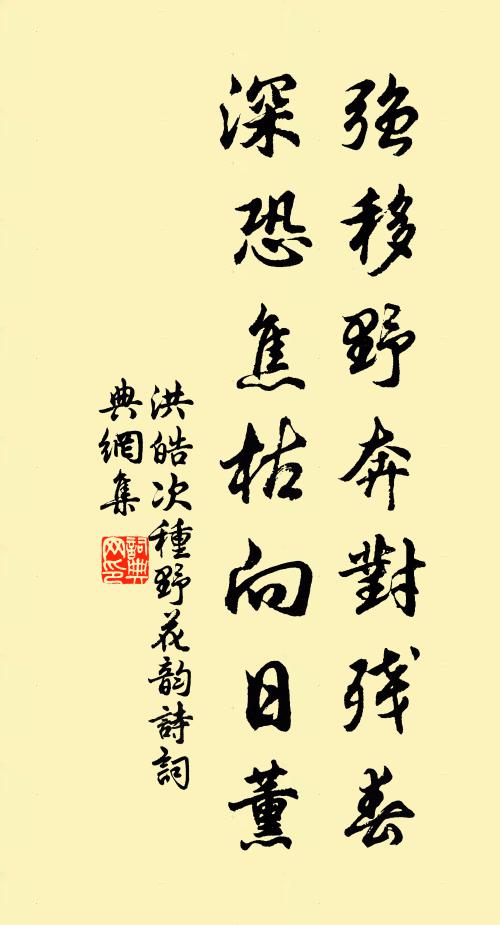 强移野奔對残春
深恐焦枯向日薰
洪皓次種野花韵詩詞
典網集
詞典
网印